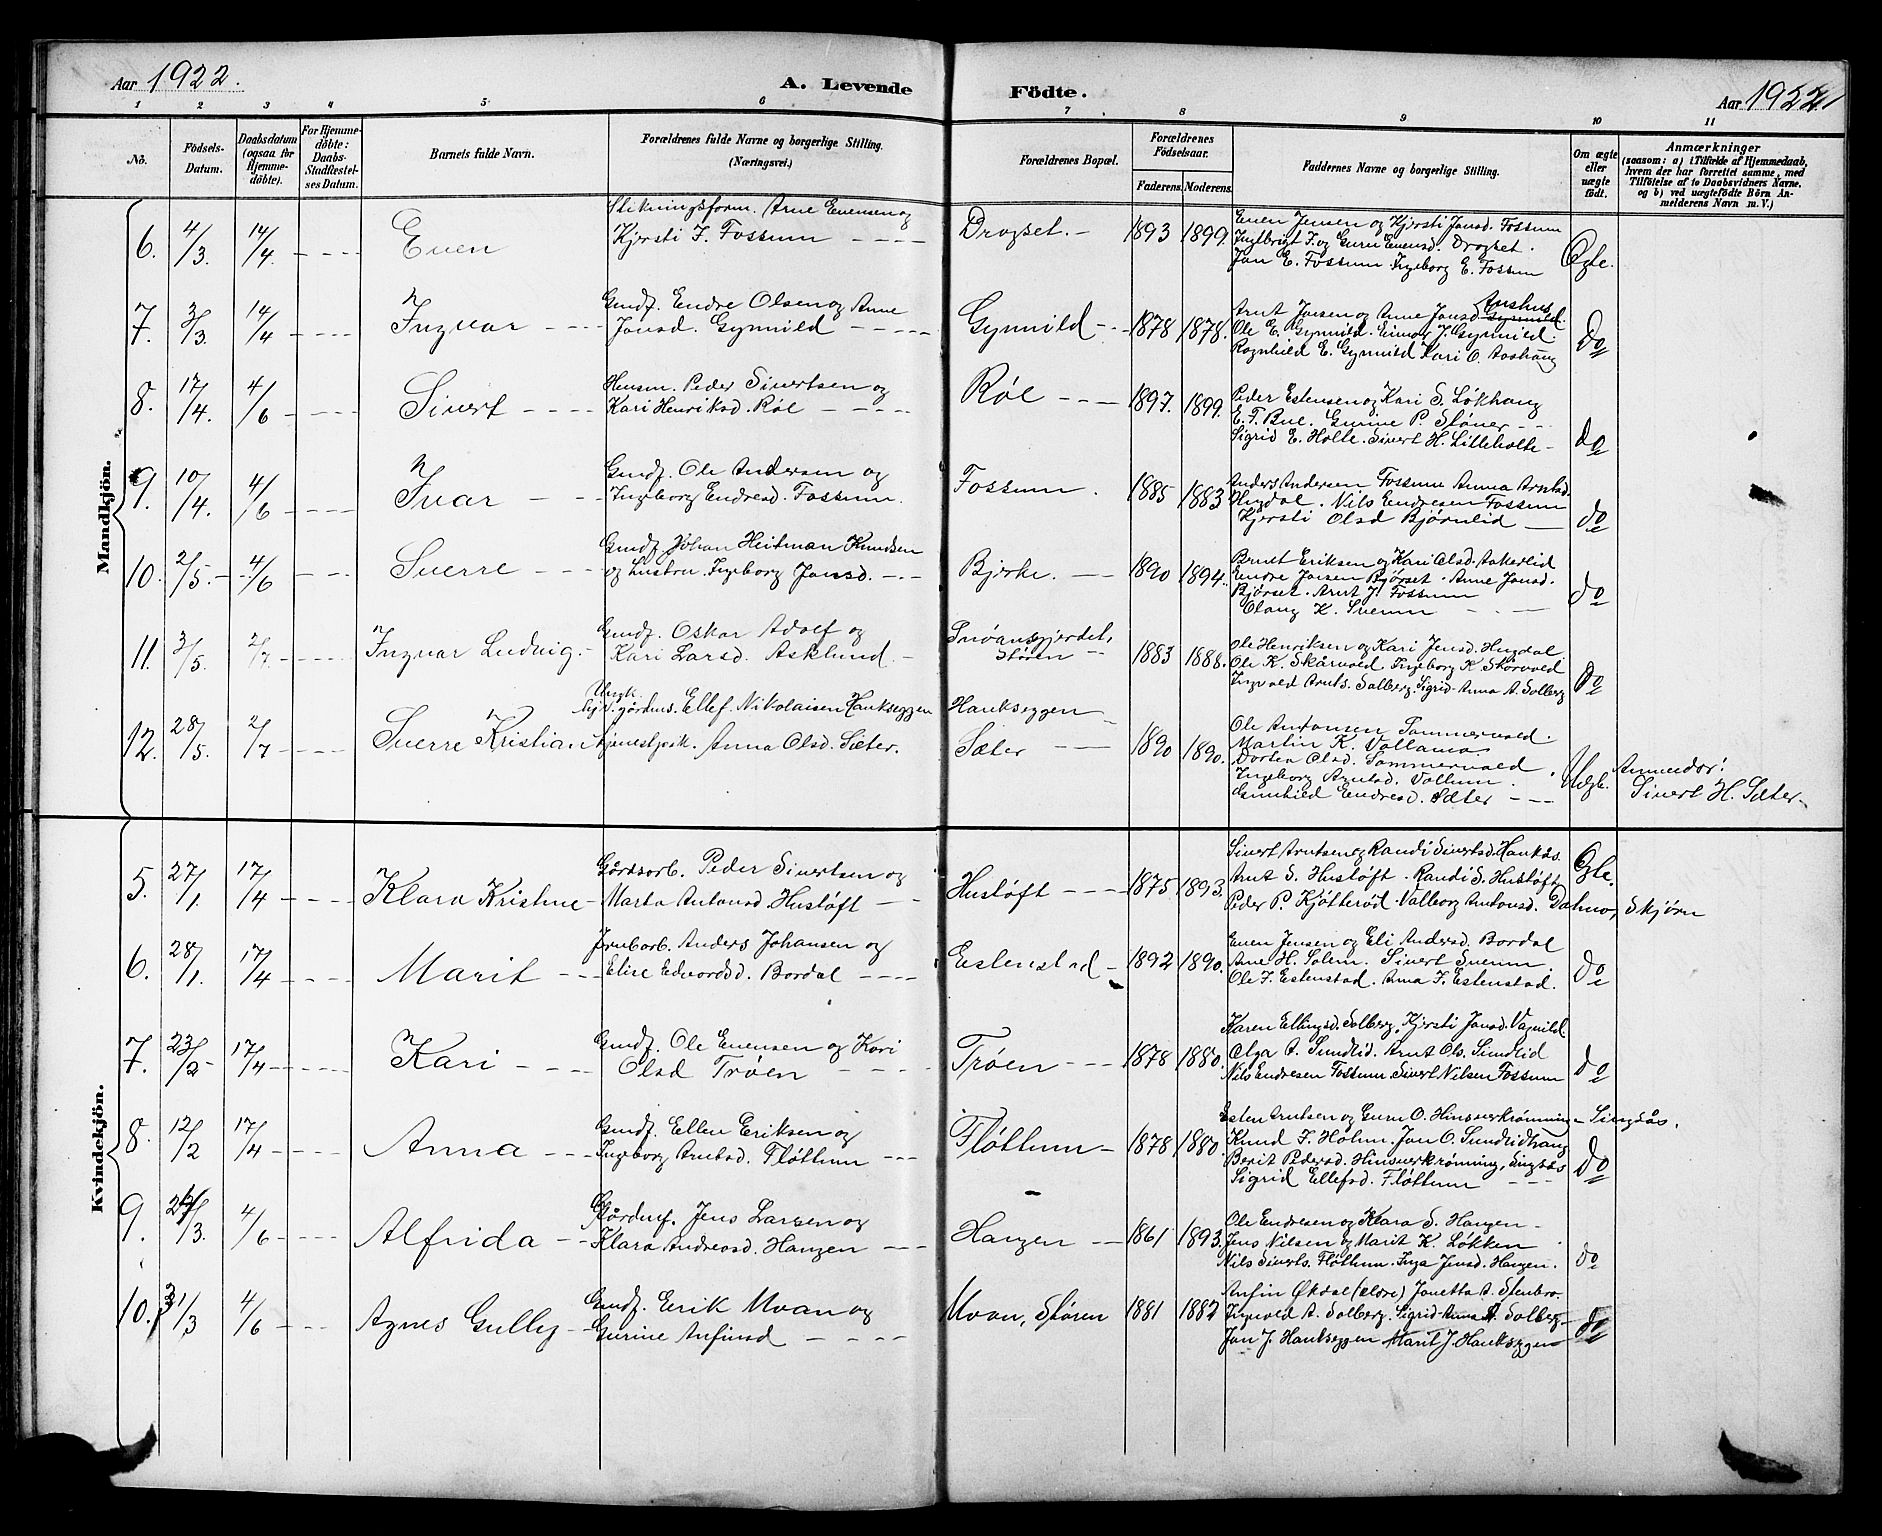 Aar 1922.
A. Levende Födte.
Aar 1922
1 2 3 4 5 6 7 8 9 10 11
No.
Födsels-Datum.
Daabsdatum (ogsaa for Hjemmedöbte).
For Hjemmedöbte: Daabs-Stadfestelses Datum.
Barnets fulde Navn.
Forældrenes fulde Navne og borgerlige Stilling. (Næringsvei.)
Forældrenes Bopæl.
Forældrenes Födselsaar.
Faderens. Moderens.
Faddernes Navne og borgerlige Stilling.
Om ægte eller uægte födt.
Anmærkninger
(saasom: a) i Tilfælde af Hjemmedaab, hvem der har forrettet samme, med Tilföielse af to Daabsvidners Navne, og b) ved uægtefödte Börn Anmelderens Navn m. V.)
Mandkjön.
6. 4/3. 14/4. Even
Arne Evensen og
Kjersti J. Fossum
Drogset. 1893 1899.
Even Jensen og Kjersti Jonsd. Fossum
Ingebrigt J. og Guru Evensd. Drogset.
Jon E. Fossum. Ingeborg E. Fossum
Ægte.
7. 3/3. 14/4 Ingvar
Gmdf. Endre Olsen og Anne
Jonsd. Gynnild
Gynnild 1878 1878.
Arnt Jonsen og Anne Jonsd. Gynnild Aushus
Ole E. Gynnild. Einar J. Gynnild
Ragnhild E. Gynnild Kari O. Aashaug
do
8. 17/4. 4/6 Sivert
Husm. Peder Sivertsen og
Kari Henriksd. Röl
Röl 1897. 1899.
Peder Estensen og Kari S. Løkhaug
E. F. Bue. Gurine P. Støner
Sigrid E. Holte. Sivert H. Lilleholte
do
9. 10/4. 4/6 Ivar
Gmdf. Ole Andersen og
Ingeborg Endresd. Fossum.
Fossum. 1885 1883
Anders Andersen Fossum Anna Arntsd.
Hugdal. Nils Endresen Fossum
Kjersti Olsd Bjørnlid
do
10. 2/5 4/6 Sverre
Gmdf Johan Heitman Knudsen
og hustru Ingeborg Jonsd.
Bjerke. 1890 1894.
Brunt Eriksen og Kari Olsd. Aakerlid
Endre Jonsen Bjørset. Anne Jonsd.
Bjørset. Arnt J. Fossum
Olaug K. Svenn
do
11. 3/5. 2/7 Ingvar Ludvig.
Gmdf. Oskar Adolf og
Kari Larsd. Asklund.
Støren 1883 1888.
Ole Henriksen og Kari Jensd. Hugdal.
Ole K. Skårvold. Ingeborg K. Skårvold
Ingvald Arnts. Solberg. Sigrid Anna A. Solberg
do
12. 28/5. 2/7 Sverre Kristian
Ungk.
Ellef Nikolaisen Haukseggen
Tjenestpik. Anna Olsd. Sæter.
Haukseggen
Sæter 1890 1890.
Ole Antonsen Sommervold.
Martin K. Vollamo
Dortea Olsd. Sommervold
Ingeborg Arntsd. Vollum.
Gunhild Endresd. Sæter
Uægt.
Anmelder:
Sivert H. Sæter.
Kvindekjön.
5. 27/1. 17/4 Klara Kristine
Gårdsarb. Peder Sivertsen og
Marta Antonsd. Husløft
Husløft 1875 1893.
Sivert Arntsen og Randi Sivertsd. Hauks.
Arnt S. Husløft. Randi S. Husløft
Peder P. Kjøtterød. Valborg Antonsd. Dalmo, Skjørn
Ægte.
6. 28/1. 17/4 Marit
Jernbarb. Anders Johansen og
Elise Edvardsd. Bordal
Estenstad 1892 1890.
Even Jensen og Eli Andersd. Bordal
Ane H. Solem. Sivert Svenn
Ole F. Estenstad. Anna F. Estenstad.
do
7. 23/2 17/4 Kari
Gmdf. Ole Evensen og Kari
Olsd Trøen
Trøen 1878 1880.
Karen Ellingsd. Solberg, Kjersti Jonsd. Vagnild
Olga A. Sundlid. Arnt Ols. Sundlid
Nils Endresen Fossum Sivert Nilsen Fossum
do
8. 12/2 17/4 Anna
Gmdf. Ellev Eriksen og
Ingeborg Arntsd. Fløttum
Fløttum 1878 1880.
Esten Arntsen og Guru O. Hinsverkrønning Singsås.
Knud F. Holm. Jon O. Sundlidhaug
Berit Pedersd. Hinsverkrønning, Singsås
Sigrid Ellefsd. Fløttum
do
9. 24/3. 4/6 Alfrida
Gårdmf. Jens Larsen og
Klara Andreasd. Haugen
Haugen 1861 1893.
Ole Endresen og Klara S. Haugen
Jens Nilsen og Marit K. Løkken
Nils Siverts. Fløttum. Inga Jensd. Haugen.
do
10. 31/3 4/6 Agnes Gully
Gmdf. Erik Moan og
Gurine Anfinsd
Moan, Støren 1881 1882
Anfin Økdal (eldre) Jonetta A. Stenbro.
Ingvald A. Solberg. Sigrid Anna A. Solberg
Jon J. Haukseggen Marit J. Haukseggen
do